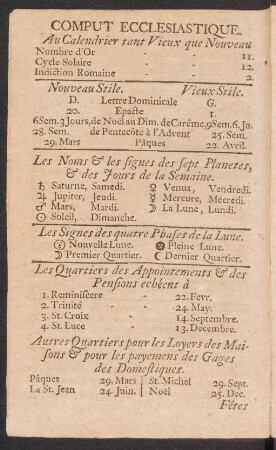 COMPUT ECCLESIASTIQUE.
Au Calendrier tant Vieux que Nouveau
Nombre d'Or - - 11.
Cycle Solaire - - 12.
Indiction Romaine - - 2.
Nouveau Stile. Vieux Stile.
D. Lettre Dominicale G.
20. Epacte 1.
6Sem. 3 Jours, de Noël au Dim. de Carême, 9Sem. 6. Jo.
28. Sem. de Pentecôte à l'Advent 25. Sem.
29. Mars Pâques 22. Avril.
Les Noms & les signes des sept Planetes,
& des Jours de la Semaine.
♄ Saturne, Samedi. ♀ Venus, Vendredi.
♃ Jupiter, Jeudi. ☿ Mercure, Mécredi.
♂ Mars, Mardi. ☽ La Lune, Lundi.
☉ Soleil, Dimanche.
Les Signes des quatre Phases de la Lune.
Nouvelle Lune. Pleine Lune.
☽ Premier Quartier. ☾ Dernier Quartier.
Les Quartiers des Appointements & des
Pensions echéent à
1. Reminiscere - 22. Fevr.
2. Trinité - - 24. May.
3. St. Croix - 14. Septembre.
4. St. Luce - - 13. Decembre.
Autres Quartiers pour les Loyers des Mai-
sons & pour les payemens des Gages
des Domestiques.
Pâques 29. Mars | St. Michel 29. Sept.
La St. Jean 24. Juin. | Noël 25. Dec.
Fêtes